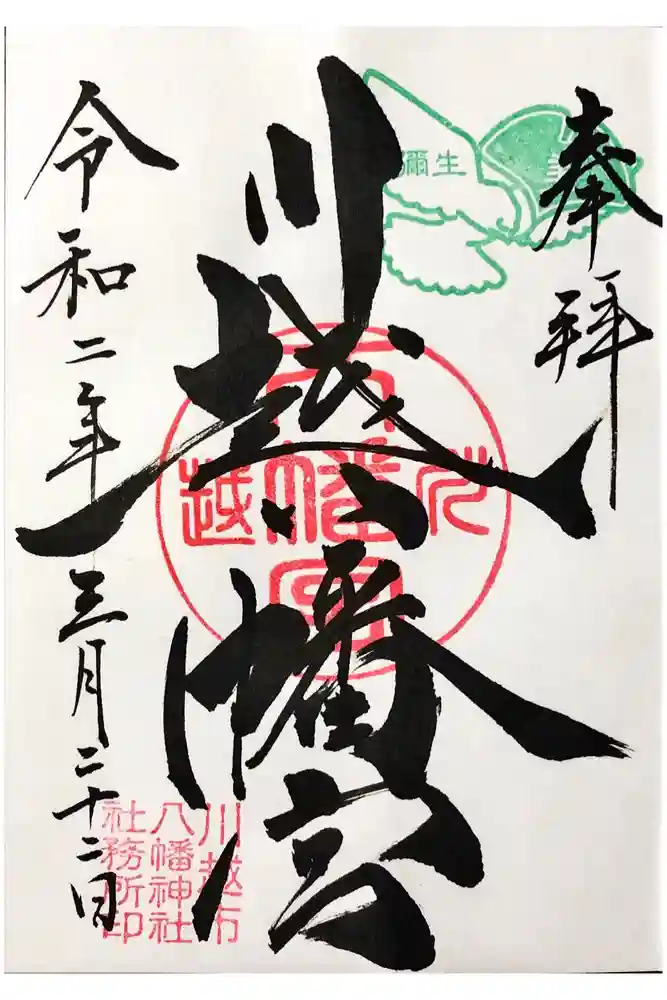 奉拝
川越八幡宮
令和二年三月二十二日
彌生
川越
八幡宮
川越市
八幡神社
社務所印